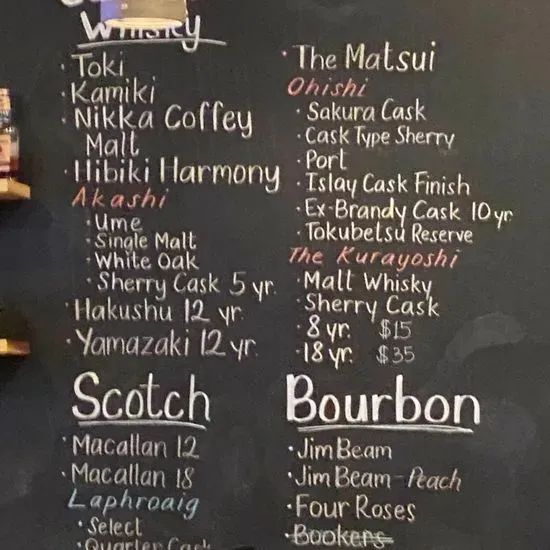 Whisky
· Toki
· Kamiki
· Nikka Coffey
Malt
· Hibiki Harmony
Akashi
· Ume
· Single Malt
· White Oak
· Sherry Cask 5 yr.
· Hakushu 12 yr.
· Yamazaki 12 yr.
· The Matsui
Ohishi
· Sakura Cask
· Cask Type Sherry
· Port
· Islay Cask Finish
· Ex-Brandy Cask 10 yr
· Tokubetsu Reserve
The Kurayoshi
· Malt Whisky
· Sherry Cask
· 8 yr. $15
· 18 yr. $35
Scotch
· Macallan 12
· Macallan 18
Laphroaig
· Select
· Quarter Cask
Bourbon
· Jim Beam
· Jim Beam - Peach
· Four Roses
· Bookers